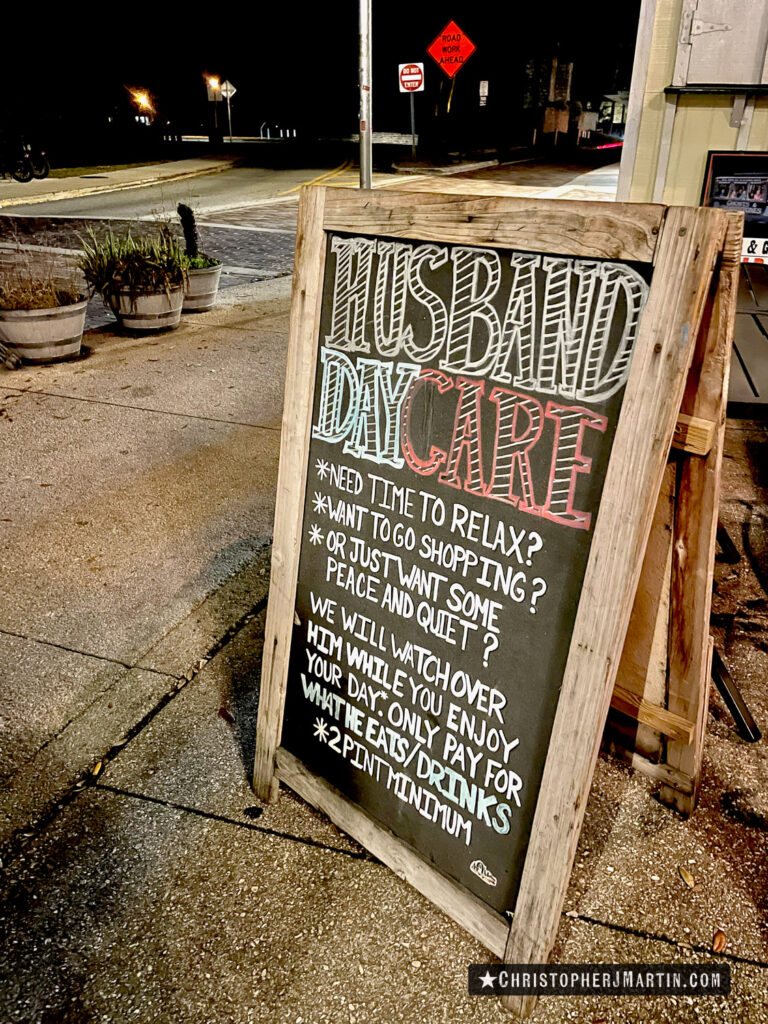 ROAD
WORK
AHEAD
DO NOT
ENTER
HUSBAND
DAY CARE
*NEED TIME TO RELAX?
*WANT TO GO SHOPPING?
*OR JUST WANT SOME
PEACE AND QUIET?
WE WILL WATCH OVER
HIM WHILE YOU ENJOY
YOUR DAY* ONLY PAY FOR
WHAT HE EATS/DRINKS
*2 PINT MINIMUM
& G
★CHRISTOPHERJMARTIN.COM